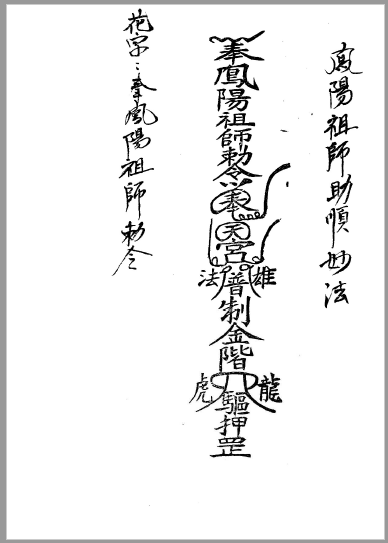 鳳陽祖師助順妙法
奉鳳陽祖師勅令奉天宮
法 普 雄
制金階
虎 龍
驅押罡
花字:奉鳳陽祖師勅令